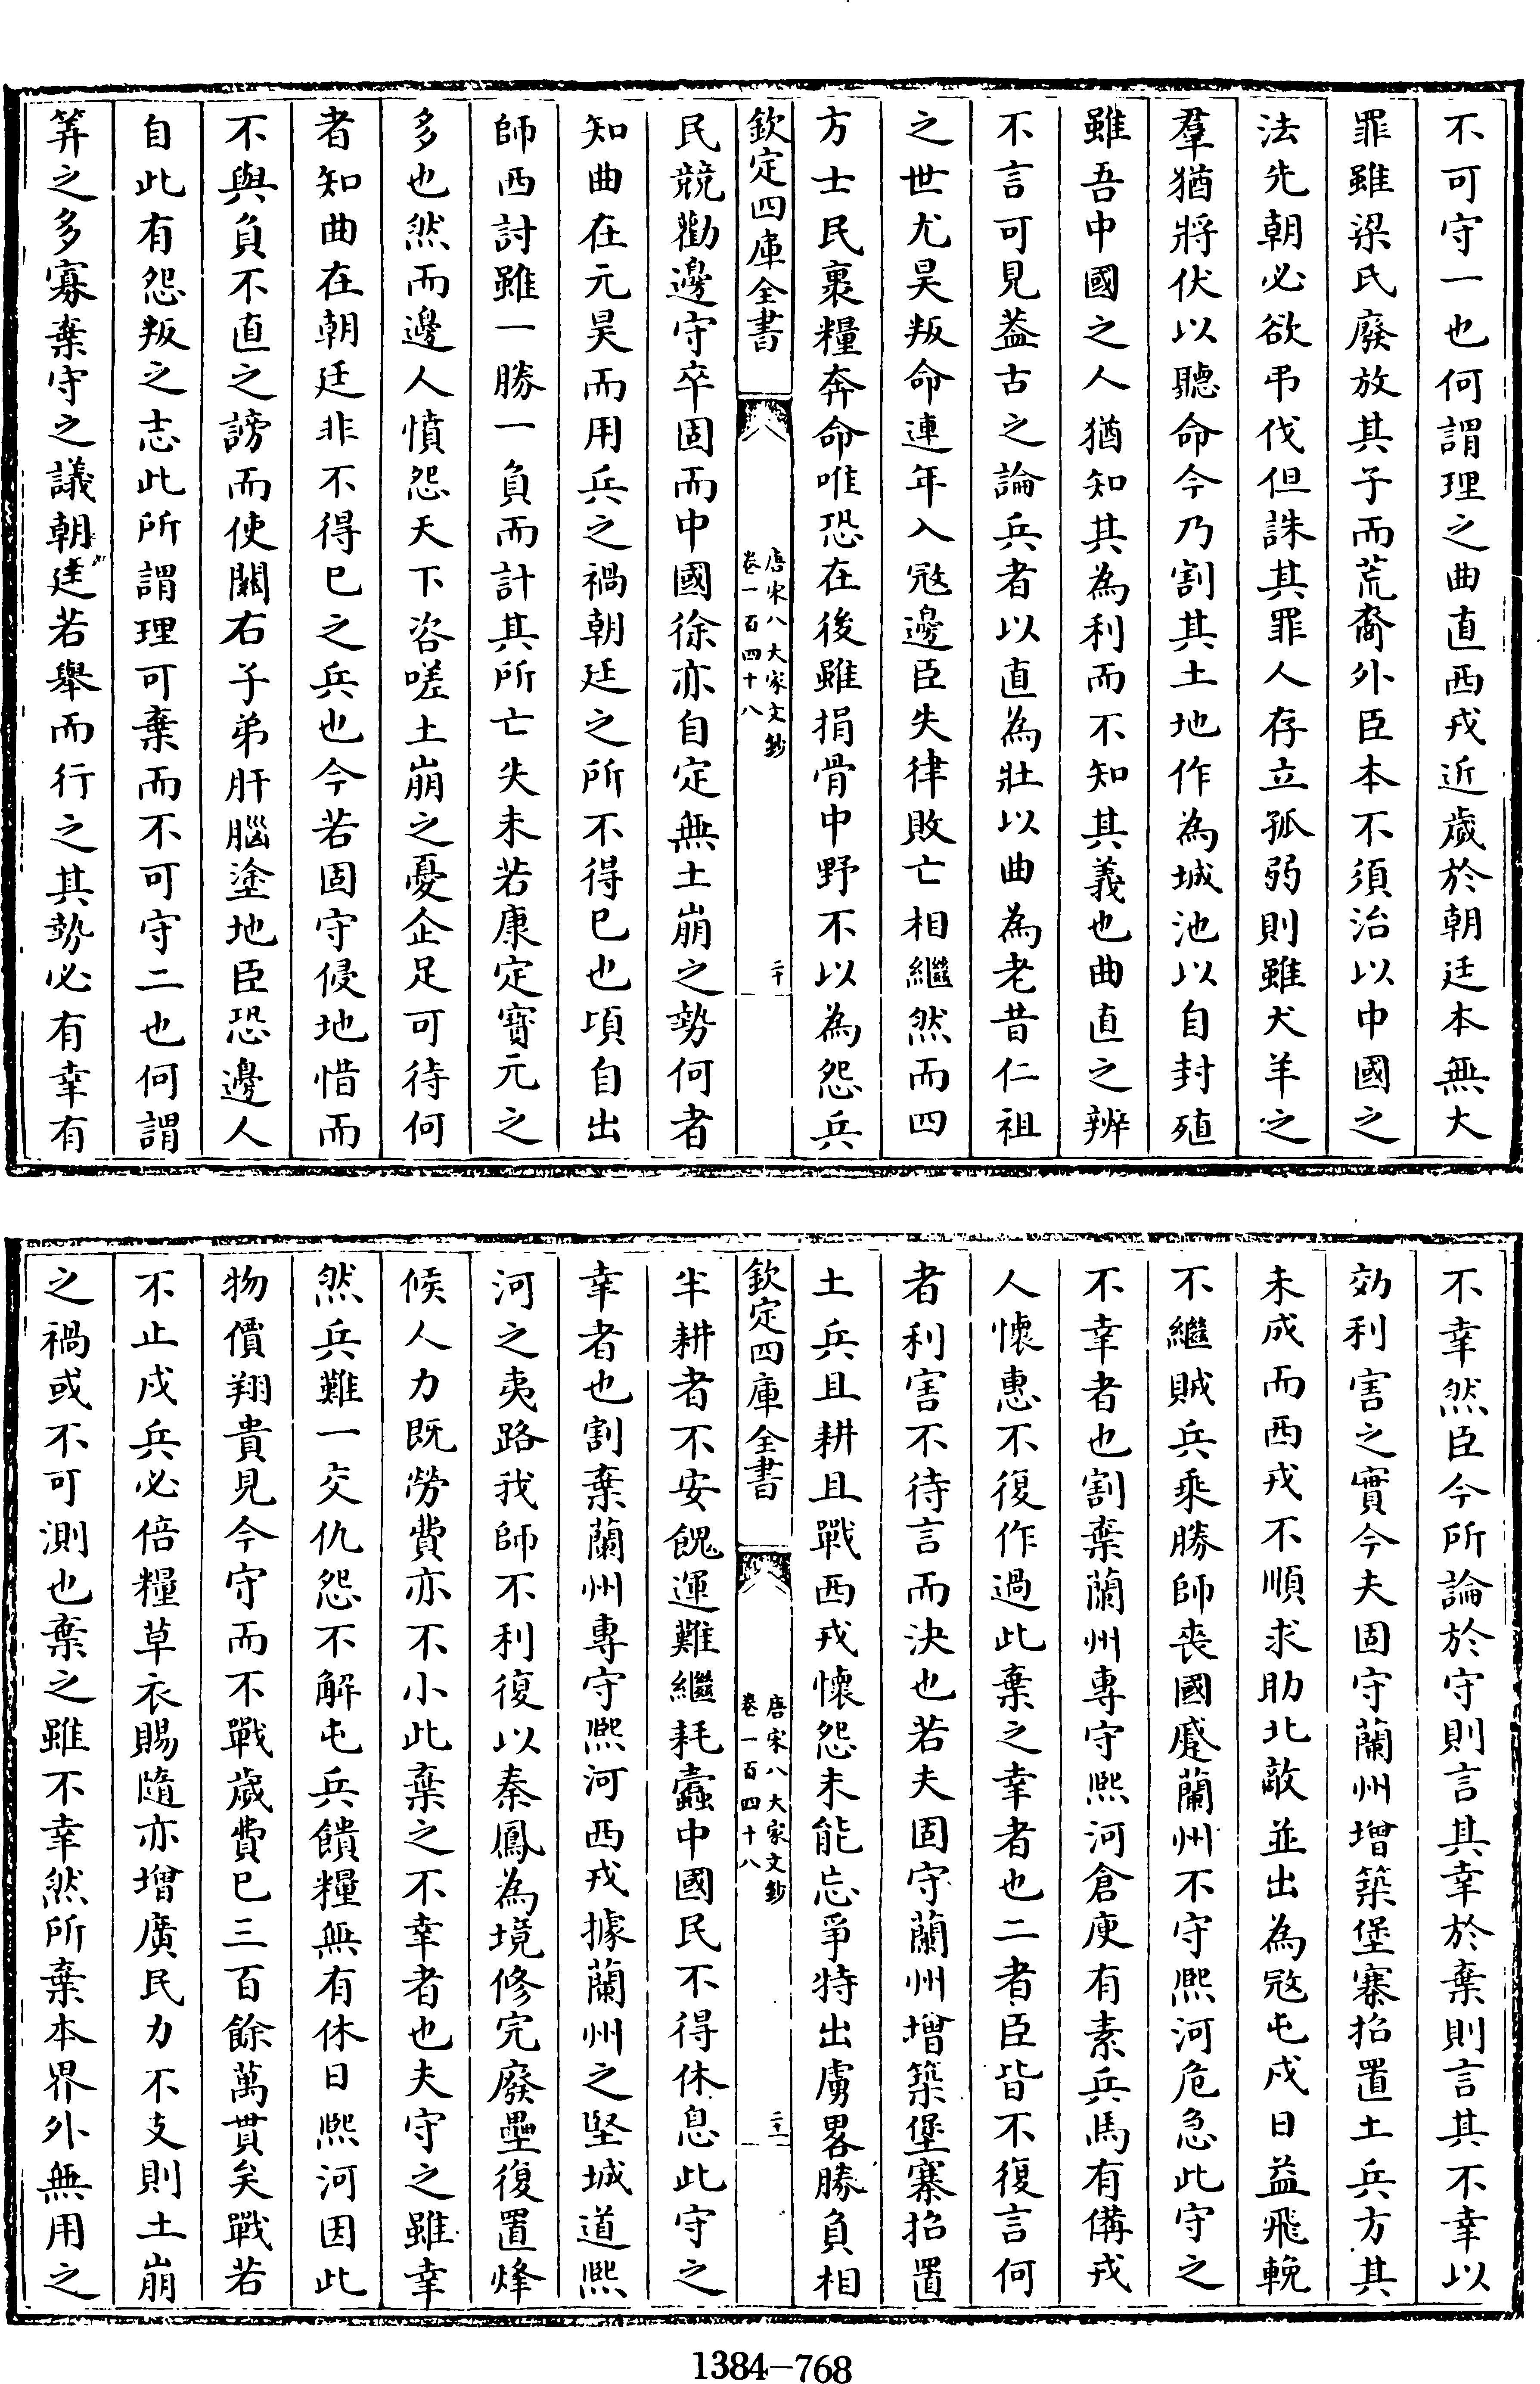 不可守一也何謂理之曲直西戎近歲於朝廷本無大
罪雖梁氏廢放其子而荒裔外臣本不須治以中國之
法先朝必欲弔伐但誅其罪人存立孤弱則雖犬羊之
羣猶將伏以聽命今乃割其土地作為城池以自封殖
雖吾中國之人猶知其為利而不知其義也曲直之辨
不言可見葢古之論兵者以直為壯以曲為老昔仁祖
之世尤昊叛命連年入冦邊臣失律敗亡相繼然而四
方士民裹糧奔命唯恐在後雖捐骨中野不以為怨兵
欽定四庫全書
唐宋八大家文鈔
卷一百四十八
二十
民競勸邊守卒固而中國徐亦自定無土崩之勢何者
知曲在元昊而用兵之禍朝廷之所不得已也頃自出
師西討雖一勝一負而計其所亡失未若康定寳元之
多也然而邊人憤怨天下咨嗟土崩之憂企足可待何
者知曲在朝廷非不得已之兵也今若固守侵地惜而
不與負不直之謗而使關右子弟肝腦塗地臣恐邊人
自此有怨叛之志此所謂理可棄而不可守二也何謂
筭之多寡棄守之議朝廷若舉而行之其勢必有幸有
不幸然臣今所論於守則言其幸於棄則言其不幸以
効利害之實今夫固守蘭州增築堡寨招置土兵方其
未成而西戎不順求助北敵並出為冦屯戍日益飛輓
不繼賊兵乘勝師喪國蹙蘭州不守熙河危急此守之
不幸者也割棄蘭州專守熙河倉庾有素兵馬有備戎
人懷惠不復作過此棄之幸者也二者臣皆不復言何
者利害不待言而決也若夫固守蘭州增築堡寨招置
土兵且耕且戰西戎懷怨未能忘爭特出虜畧勝負相
欽定四庫全書
唐宋八大家文鈔
卷一百四十八
二十一
半耕者不安餽運難繼耗蠹中國民不得休息此守之
幸者也割棄蘭州專守熙河西戎據蘭州之堅城道熙
河之夷路我師不利復以秦鳳為境修完廢壘復置烽
候人力既勞費亦不小此棄之不幸者也夫守之雖幸
然兵難一交仇怨不解屯兵饋糧無有休日熙河因此
物價翔貴見今守而不戰歲費已三百餘萬貫矣戰若
不止戍兵必倍糧草衣賜隨亦增廣民力不支則土崩
之禍或不可測也棄之雖不幸然所棄本界外無用之
1384-768